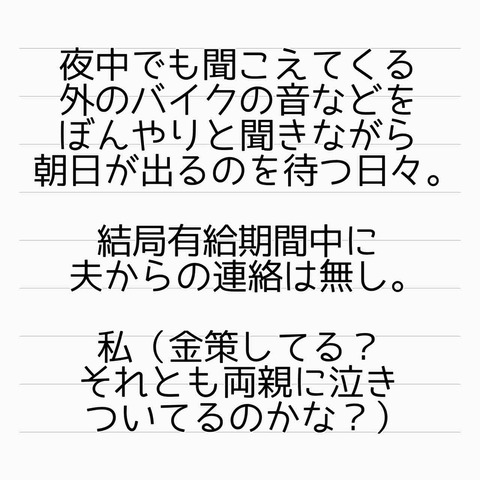 夜中でも聞こえてくる
外のバイクの音などを
ぼんやりと聞きながら
朝日が出るのを待つ日々。
結局有給期間中に
夫からの連絡は無し。
私（金策してる？
それとも両親に泣き
ついてるのかな？）